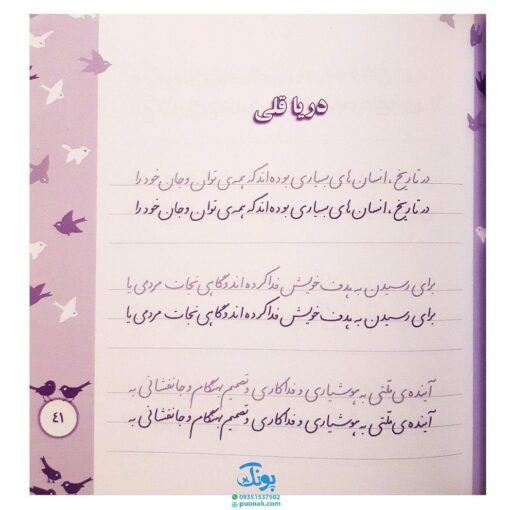 دریا قلی
در تاریخ، انسان‌های بسیاری بوده‌اند که همه‌ی توان و جان خود را
در تاریخ، انسان‌های بسیاری بوده‌اند که همه‌ی توان و جان خود را
برای رسیدن به هدف خویش فدا کرده اند و گاهی نجات مردمی یا
برای رسیدن به هدف خویش فدا کرده اند و گاهی نجات مردمی یا
آینده‌ی ملتی به هوشیاری و فداکاری و تصمیم بهنگام و جانفشانی به
آینده‌ی ملتی به هوشیاری و فداکاری و تصمیم بهنگام و جانفشانی به
۴۱
پونک
09351537502
puonak.com